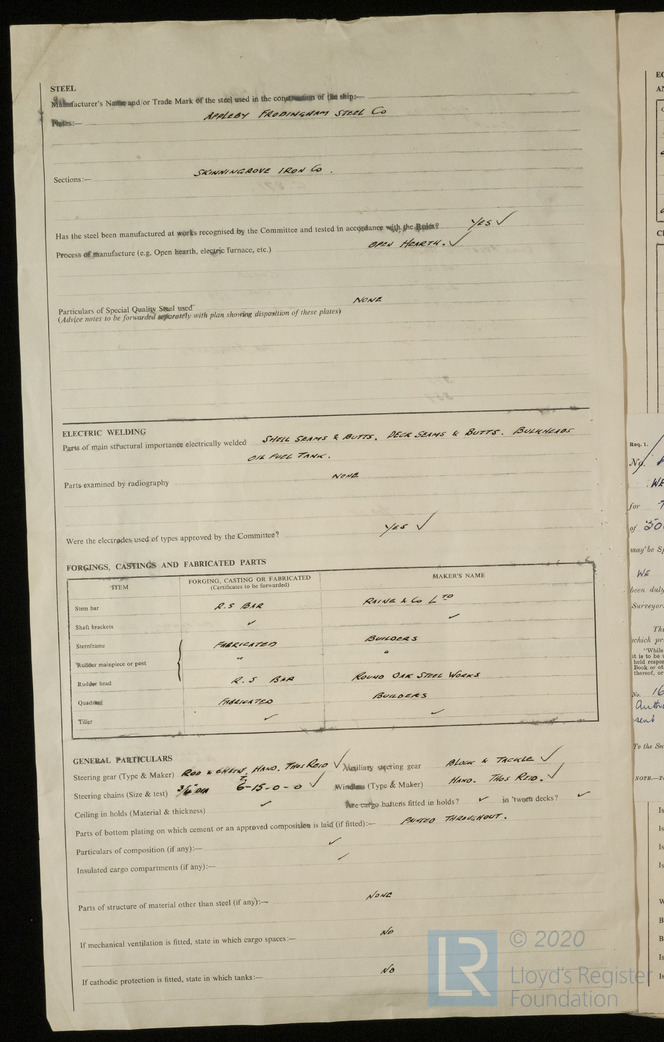 STEEL
Manufacturer's Name and/or Trade Mark of the steel used in the construction of the ship:—
Plates:— APPLEBY FRODINGHAM STEEL Co
Sections:— SKINNINGROVE IRON Co.
Has the steel been manufactured at works recognised by the Committee and tested in accordance with the Rules? YES ✓
Process of manufacture (e.g. Open hearth, electric furnace, etc.) OPEN HEARTH. ✓
Particulars of Special Quality Steel used NONE
(Advice notes to be forwarded separately with plan showing disposition of these plates)
ELECTRIC WELDING
Parts of main structural importance electrically welded SHELL SEAMS & BUTTS. DECK SEAMS & BUTTS. BULKHEADS
OIL FUEL TANK.
Parts examined by radiography NONE
Were the electrodes used of types approved by the Committee? YES ✓
FORGINGS, CASTINGS AND FABRICATED PARTS
ITEM FORGING, CASTING OR FABRICATED MAKER'S NAME
(Certificates to be forwarded)
Stem bar R.S BAR RAINE & Co LTD
Shaft brackets ✓ ✓
Sternframe FABRICATED BUILDERS
Rudder mainpiece or post " "
Rudder head R.S BAR ROUND OAK STEEL WORKS
Quadrant FABRICATED BUILDERS
Tiller ✓ ✓
GENERAL PARTICULARS
Steering gear (Type & Maker) ROD & CHAIN, HAND. THOS REID ✓ Auxiliary steering gear BLOCK & TACKLE ✓
Steering chains (Size & test) 6-15-0-0 ✓ Windlass (Type & Maker) HAND. THOS REID. ✓
Ceiling in holds (Material & thickness) ✓ Are cargo battens fitted in holds? ✓ in 'tween decks? ✓
Parts of bottom plating on which cement or an approved composition is laid (if fitted):— PAINTED THROUGHOUT.
Particulars of composition (if any):— ✓
Insulated cargo compartments (if any):— ✓
Parts of structure of material other than steel (if any):— NONE
If mechanical ventilation is fitted, state in which cargo spaces:— NO
If cathodic protection is fitted, state in which tanks:— NO
Req. 1.
No.
WE
for
of
may be
WE
been duly
Surveyor
Th
which pr
"While
it is to be
held respo
Book or ot
thereof, or
No. 16
sent
To the Su
LR
© 2020
Lloyd's Register
Foundation